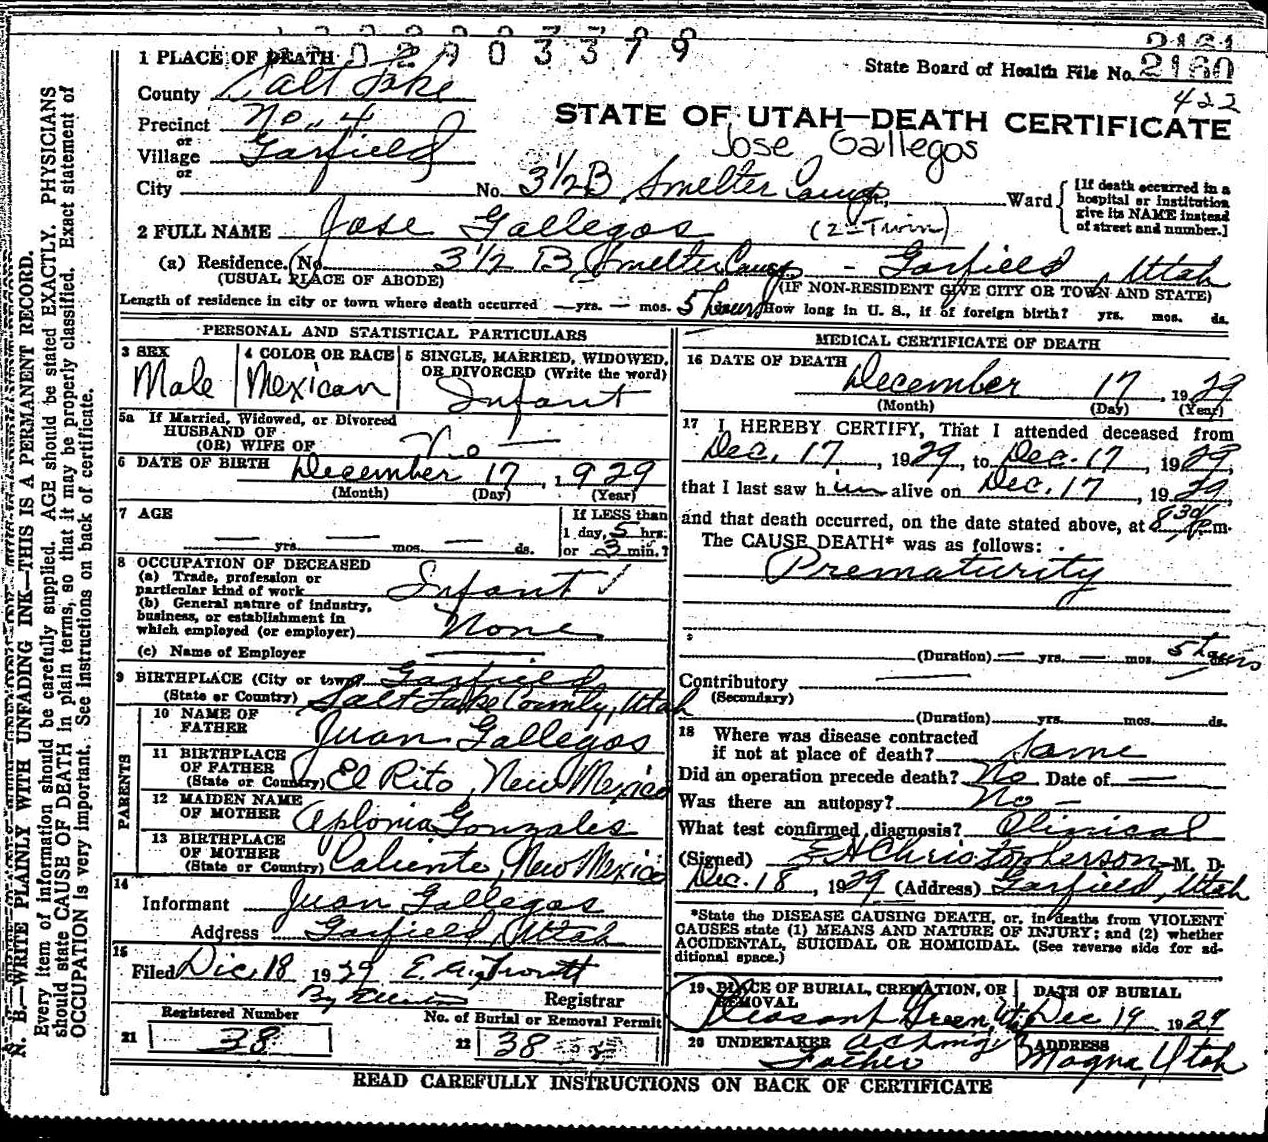 1302903379
2161
State Board of Health File No. 2160
422
1 PLACE OF DEATH
County Salt Lake
Precinct No. 4
or
Village Garfield
or
City
STATE OF UTAH—DEATH CERTIFICATE
Jose Gallegos
No. 3 1/2 B Smelter Camp, Ward
[If death occurred in a hospital or institution give its NAME instead of street and number.]
2 FULL NAME Jose Gallegos (2- Twin)
(a) Residence. (No. 3 1/2 B Smelter Camp - Garfield, Utah
(USUAL PLACE OF ABODE) (IF NON-RESIDENT GIVE CITY OR TOWN AND STATE)
Length of residence in city or town where death occurred — yrs. — mos. 5 hours How long in U. S., if of foreign birth? yrs. mos. ds.
PERSONAL AND STATISTICAL PARTICULARS
3 SEX Male
4 COLOR OR RACE Mexican
5 SINGLE, MARRIED, WIDOWED, OR DIVORCED (Write the word) Infant
5a If Married, Widowed, or Divorced
HUSBAND OF
(OR) WIFE OF No —
6 DATE OF BIRTH December 17, 1929
(Month) (Day) (Year)
7 AGE — yrs. — mos. — ds.
If LESS than
1 day, 5 hrs.
or 3 min.?
8 OCCUPATION OF DECEASED
(a) Trade, profession or
particular kind of work Infant ✓
(b) General nature of industry,
business, or establishment in
which employed (or employer) None
(c) Name of Employer —
9 BIRTHPLACE (City or town) Garfield
(State or Country) Salt Lake County, Utah
PARENTS
10 NAME OF FATHER Juan Gallegos
11 BIRTHPLACE OF FATHER
(State or Country) El Rito, New Mexico
12 MAIDEN NAME OF MOTHER Aplonia Gonzales
13 BIRTHPLACE OF MOTHER
(State or Country) Caliente, New Mexico
14
Informant Juan Gallegos
Address Garfield, Utah
15
Filed Dec. 18 1929
Registrar
Registered Number
21 38
No. of Burial or Removal Permit
22 38
MEDICAL CERTIFICATE OF DEATH
16 DATE OF DEATH December 17, 1929
(Month) (Day) (Year)
17 I HEREBY CERTIFY, That I attended deceased from
Dec. 17, 1929, to Dec. 17, 1929,
that I last saw h im alive on Dec. 17, 1929
and that death occurred, on the date stated above, at 8 30 P. m.
The CAUSE DEATH* was as follows:
Prematurity
(Duration) — yrs. — mos. 5 hours ds.
Contributory —
(Secondary)
(Duration) yrs. mos. ds.
18 Where was disease contracted
if not at place of death? Same
Did an operation precede death? No Date of —
Was there an autopsy? No —
What test confirmed diagnosis? Clinical
(Signed) E H Christopherson M. D.
Dec. 18, 1929 (Address) Garfield, Utah
*State the DISEASE CAUSING DEATH, or, in deaths from VIOLENT
CAUSES state (1) MEANS AND NATURE OF INJURY; and (2) whether
ACCIDENTAL, SUICIDAL OR HOMICIDAL. (See reverse side for ad-
ditional space.)
19 PLACE OF BURIAL, CREMATION, OR REMOVAL
Pleasant Green, Utah
DATE OF BURIAL
Dec 19 1929
20 UNDERTAKER Acting
Father
ADDRESS
Magna, Utah
READ CAREFULLY INSTRUCTIONS ON BACK OF CERTIFICATE
N. B.—WRITE PLAINLY WITH UNFADING INK—THIS IS A PERMANENT RECORD.
Every item of information should be carefully supplied. AGE should be stated EXACTLY. PHYSICIANS
should state CAUSE OF DEATH in plain terms, so that it may be properly classified. Exact statement of
OCCUPATION is very important. See instructions on back of certificate.